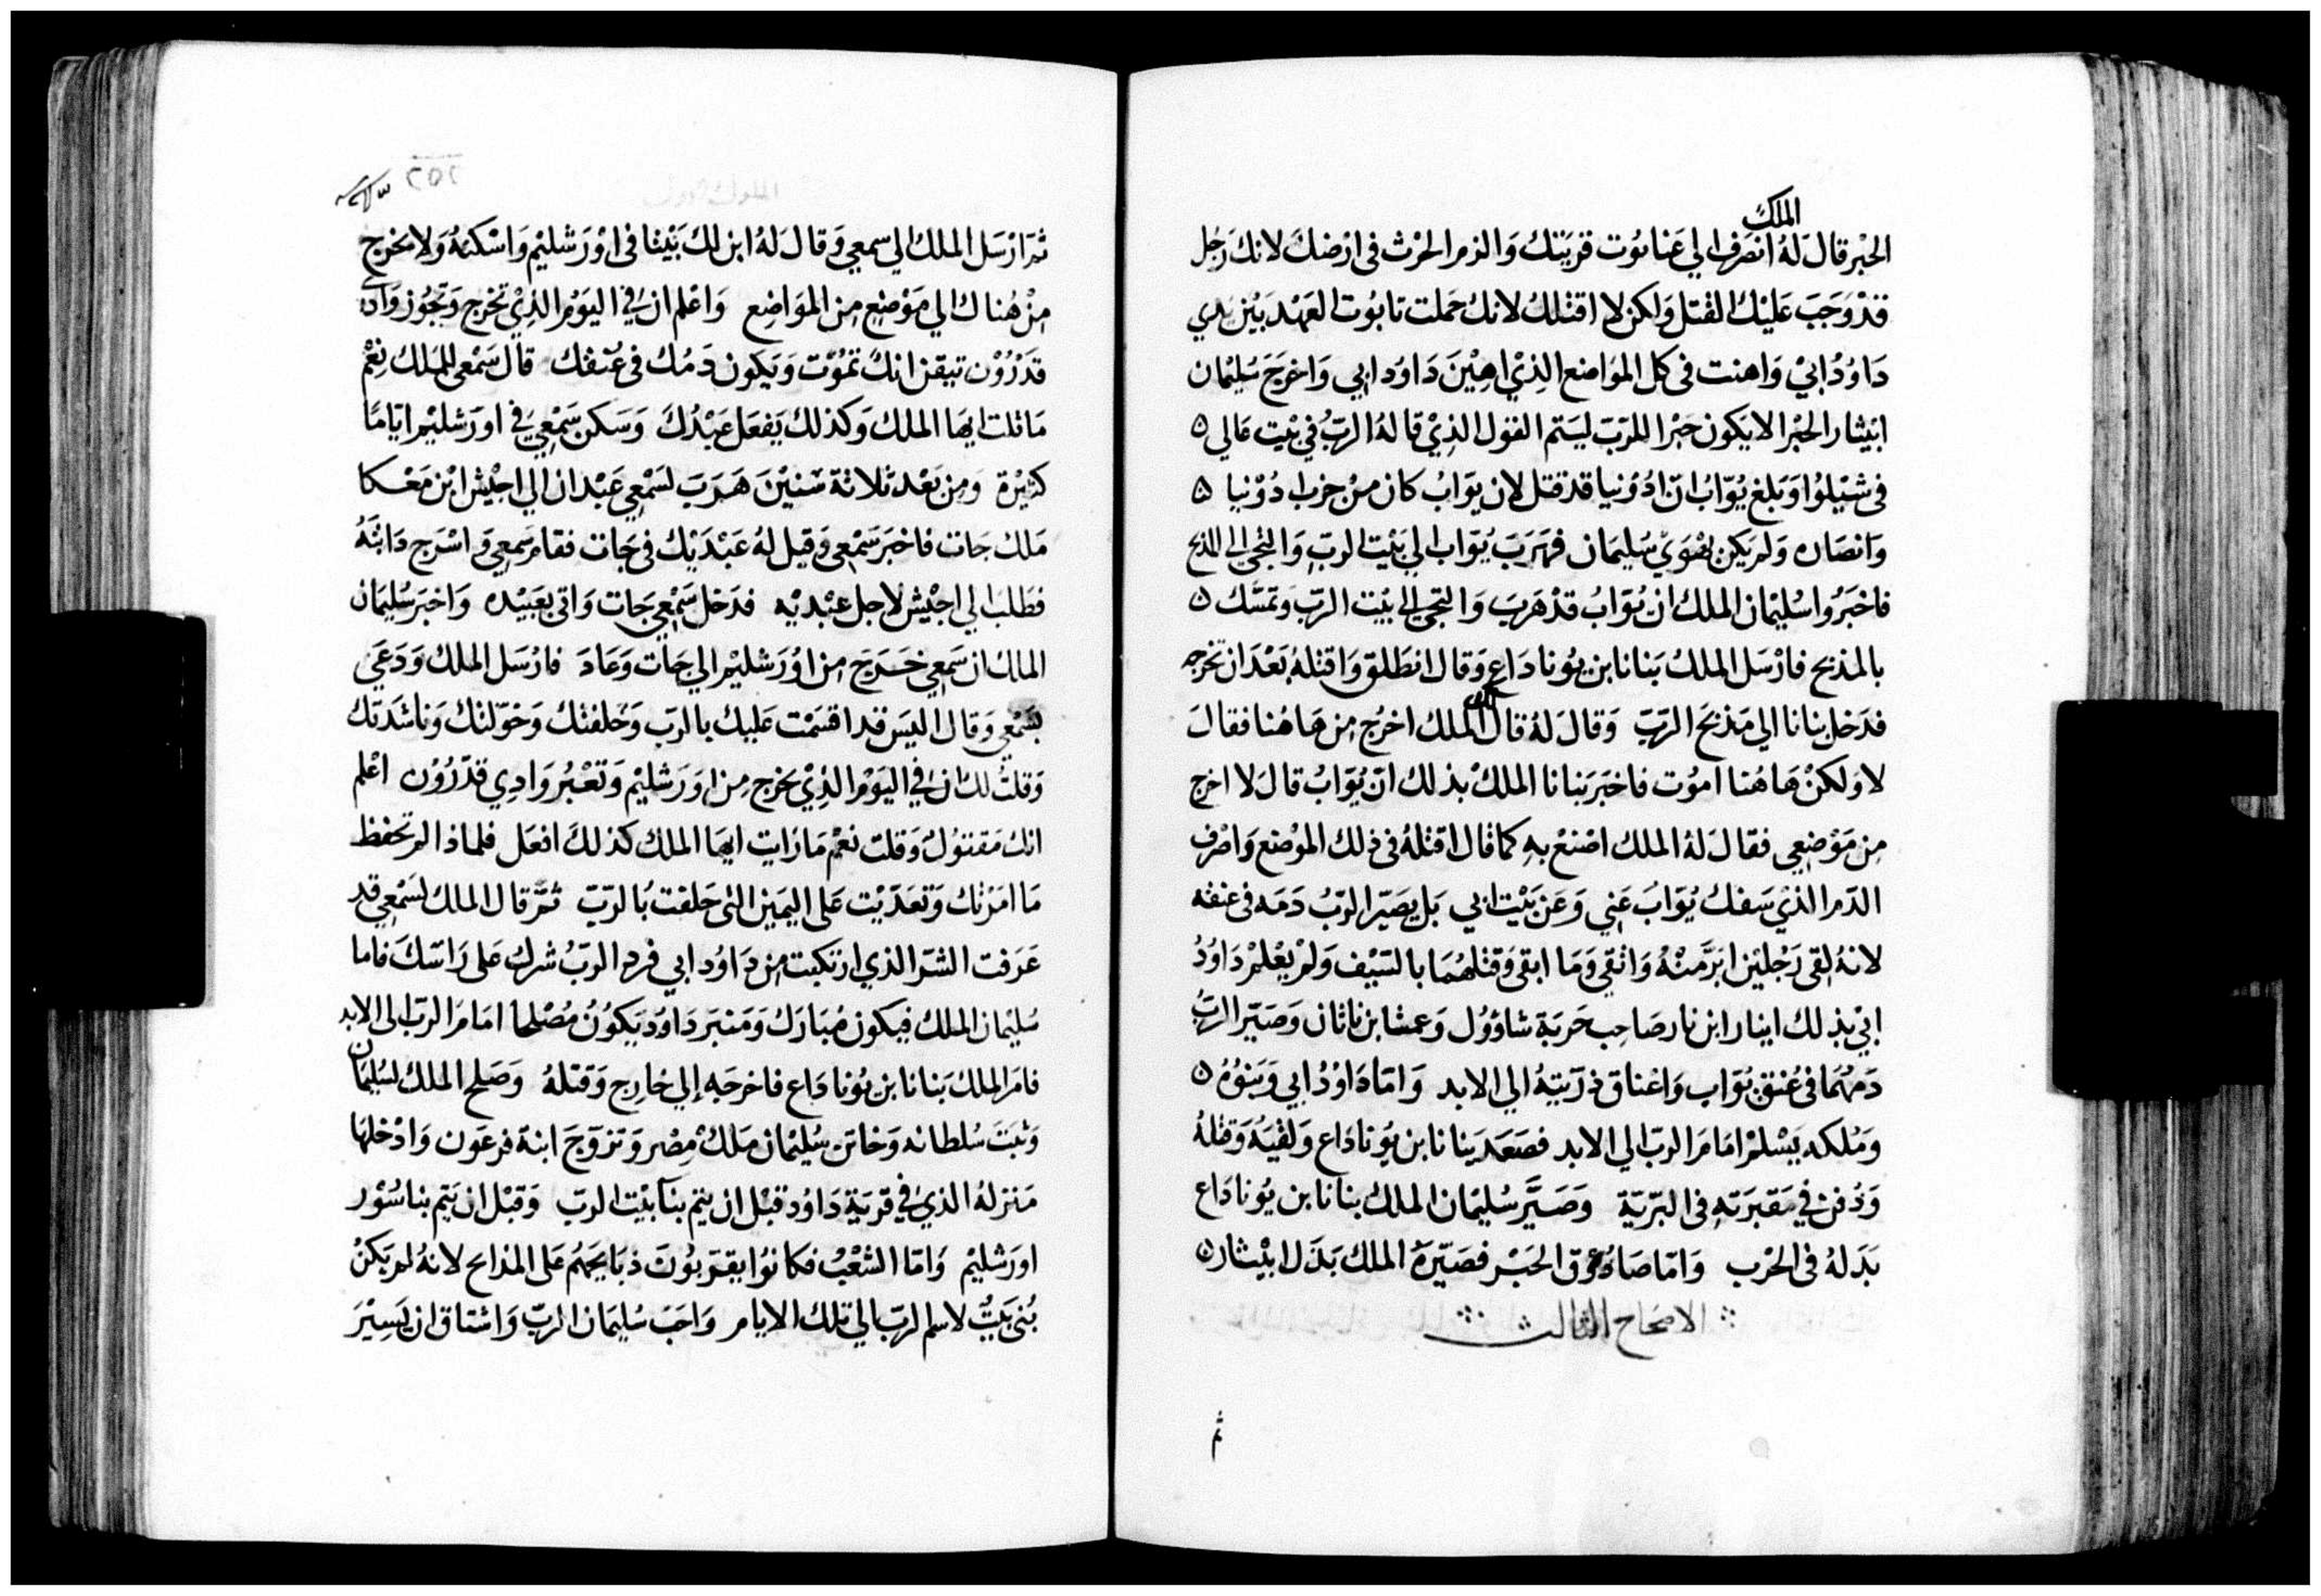 الملك
الحبر قال له انصرف الي عناتوت قريتك والزم الحرث في ارضك لانك رجل
قد وجب عليك القتل ولكن لا اقتلك لانك حملت تابوت العهد بين يدي
داوُد ابي واهنت في كل المواضع الذي اهين داود ابي واخرج سليمان
ابيثار الحبر الا يكون حبرا للرب ليتم القول الذي قاله الرب في بيت عالي ٥
في شيلوا وبلغ يوّاب ان ادونيا قد قتل لان يواب كان من حزب ادونيا ٥
وانصاره ولم يكن يهوي سليمان فهرب يوّاب الي بيت الرب والتجي الي المذبح
فاخبروا سليمان الملك ان يوّاب قد هرب والتجي الي بيت الرب وتمسّك ٥
بالمذبح فارسل الملك بنانا بن يوناداع وقال انطلق واقتله بعد ان تخرجه
فدخل بنانا الي مذبح الرب وقال له قال الملك اخرج من هاهنا فقال
لا ولكن هاهنا اموت فاخبر بنانا الملك بذلك انّ يوّاب قال لا اخرج
من موضعي فقال له الملك اصنع به كما قال اقتله في ذلك الموضع واصرف
الدم الذي سفك يوّاب عني وعن بيت ابي بل يصيّر الرب دمه في عنقه
لانه لقي رجلين ابرّ منه واتقي وما ابقي وقتلهما بالسيف ولم يعلم داوُد
ابي بذلك ابينار ابن نار صاحب حربة شاؤول وعمشا بن ناثان وصيّر الرب
دمهما في عنق يوّاب واعناق ذرّيته الي الابد وامّا داوُد ابي وبنوه ٥
وملكه يسلم امام الرب الي الابد فصعد بنانا بن يوناداع ولقيه وقتله
ودفن في مقبرته في البرّيّة وصيّر سليمان الملك بنانا بن يوناداع
بدله في الحرب وامّا صادوق الحبر فصيّره الملك بدل ابيثار ٥
الاصحاح الثالث
ثم
٢٥٢
ثم ارسل الملك الي سمعي وقال له ابن لك بيتا في اورشليم واسكنه ولا تخرج
من هناك الي موضع من المواضع واعلم ان في اليوم الذي تخرج وتجوز وادي
قدرون تيقن انك تموت ويكون دمك في عنقك قال سمعي للملك نعم
ما قلت ايها الملك وكذلك يفعل عبدك وسكن سمعي في اورشليم ايّاما
كثيرة ومن بعد ثلاثة سنين هرب لسمعي عبدان الي اجيش ابن معكا
ملك جات فاخبر سمعي وقيل له عبديك في جات فقام سمعي واسرج دابته
فطلب الي اجيش لاجل عبديه فدخل سمعي جات واتي بعبيده واخبر سليمان
الملك ان سمعي خرج من اورشليم الي جات وعاد فارسل الملك ودعي
بسمعي وقال اليس قد اقسمت عليك بالرب وحلفتك وخوّلتك وناشدتك
وقلت لك ان في اليوم الذي تخرج من اورشليم وتعبر وادي قدرون اعلم
انك مقتول وقلت نعم ما رايت ايها الملك كذلك افعل فلماذا لم تحفظ
ما امرتك وتعدّيت علي اليمين التي حلفت بالرب ثم قال الملك لسمعي قد
عرفت الشر الذي ارتكبت من داود ابي فرد الرب شرك علي راسك فاما
سليمان الملك فيكون مبارك ومنبر داود يكون مصلحا امام الرب الي الابد
فامر الملك بنانا بن يوناداع فاخرجه إلي خارج وقتله وصلح الملك لسليمان
وثبت سلطانه وخاتن سليمان ملك مصر وتزوّج ابنة فرعون وادخلها
منزله الذي في قرية داود قبل ان يتم بنا بيت الرب وقبل ان يتم بنا سور
اورشليم وامّا الشعب فكانوا يقرّبون ذبايحهم علي المذابح لانه لم يكن
بني بيت لاسم الرب الي تلك الايام واحب سليمان الرب واشتاق ان يسير